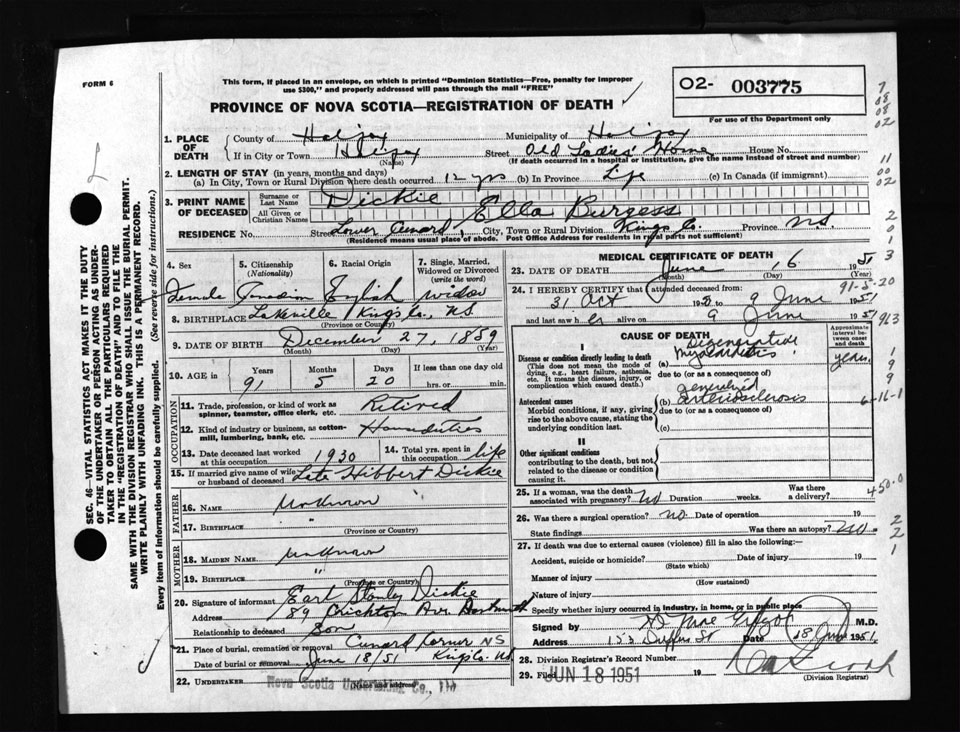 FORM 6
This form, if placed in an envelope, on which is printed "Dominion Statistics—Free, penalty for improper
use $300," and properly addressed will pass through the mail "FREE"
O2- 003775
For use of the Department only
PROVINCE OF NOVA SCOTIA—REGISTRATION OF DEATH
1. PLACE OF DEATH
County of Halifax Municipality of Halifax
If in City or Town Halifax Street Old Ladies' Home House No.
(Name) (If death occurred in a hospital or institution, give the name instead of street and number)
2. LENGTH OF STAY (in years, months and days)
(a) In City, Town or Rural Division where death occurred 12 yrs (b) In Province Life (c) In Canada (if immigrant)
3. PRINT NAME OF DECEASED
Surname or Last Name Dickie
All Given or Christian Names Ella Burgess
RESIDENCE No. Street Lower Canard, City, Town or Rural Division Kings Co. Province N.S.
(Residence means usual place of abode. Post Office Address for residents in rural parts not sufficient)
4. Sex Female
5. Citizenship (Nationality) Canadian
6. Racial Origin English
7. Single, Married, Widowed or Divorced (write the word) Widow
8. BIRTHPLACE Lakeville Kings Co., N.S.
(Province or Country)
9. DATE OF BIRTH December 27, 1859
(Month) (Day) (Year)
10. AGE in Years 91 Months 5 Days 20 If less than one day old hrs. or min.
OCCUPATION
11. Trade, profession, or kind of work as spinner, teamster, office clerk, etc. Retired
12. Kind of industry or business, as cotton-mill, lumbering, bank, etc. House duties
13. Date deceased last worked at this occupation 1930
14. Total yrs. spent in this occupation life
15. If married give name of wife or husband of deceased Late Hibbert Dickie
FATHER
16. NAME Unknown
17. BIRTHPLACE "
(Province or Country)
MOTHER
18. MAIDEN NAME Unknown
19. BIRTHPLACE "
(Province or Country)
20. Signature of informant Earl Stanley Dickie
Address 89 Crichton Ave. Dartmouth
Relationship to deceased Son
21. Place of burial, cremation or removal Canard Corner NS
Date of burial or removal June 18/51 Kings Co. NS
22. UNDERTAKER Nova Scotia Undertaking Co., Ltd
(Name and address)
MEDICAL CERTIFICATE OF DEATH
23. DATE OF DEATH June 16 1951
(Month) (Day) (Year)
91-5-20
24. I HEREBY CERTIFY that I attended deceased from:
31 Oct 1950 9 June 1951
and last saw her alive on 9 June 1951
CAUSE OF DEATH
Approximate interval between onset and death
I
Disease or condition directly leading to death
(This does not mean the mode of dying, e.g., heart failure, asthenia, etc. It means the disease, injury, or complication which caused death.)
(a) Degenerative Myocarditis years
due to (or as a consequence of)
Antecedent causes
Morbid conditions, if any, giving rise to the above cause, stating the underlying condition last.
(b) generalized arteriosclerosis
due to (or as a consequence of)
(c)
6-16-1
II
Other significant conditions
contributing to the death, but not related to the disease or condition causing it.
25. If a woman, was the death associated with pregnancy? No Duration weeks. Was there a delivery?
450.0
26. Was there a surgical operation? No. Date of operation 19
State findings Was there an autopsy? No.
27. If death was due to external causes (violence) fill in also the following:—
Accident, suicide or homicide? Date of injury 19
(State which)
Manner of injury
(How sustained)
Nature of injury
Specify whether injury occurred in industry, in home, or in public place
Signed by M.D.
Address 153 St Date 18 June 1951
28. Division Registrar's Record Number
29. Filed JUN 18 1951 19
(Division Registrar)
SEC. 46—VITAL STATISTICS ACT MAKES IT THE DUTY
OF THE UNDERTAKER OR PERSON ACTING AS UNDERTAKER TO OBTAIN ALL THE PARTICULARS REQUIRED
IN THE "REGISTRATION OF DEATH" AND TO FILE THE
SAME WITH THE DIVISION REGISTRAR WHO SHALL ISSUE THE BURIAL PERMIT.
WRITE PLAINLY WITH UNFADING INK. THIS IS A PERMANENT RECORD.
Every item of information should be carefully supplied. (See reverse side for instructions.)